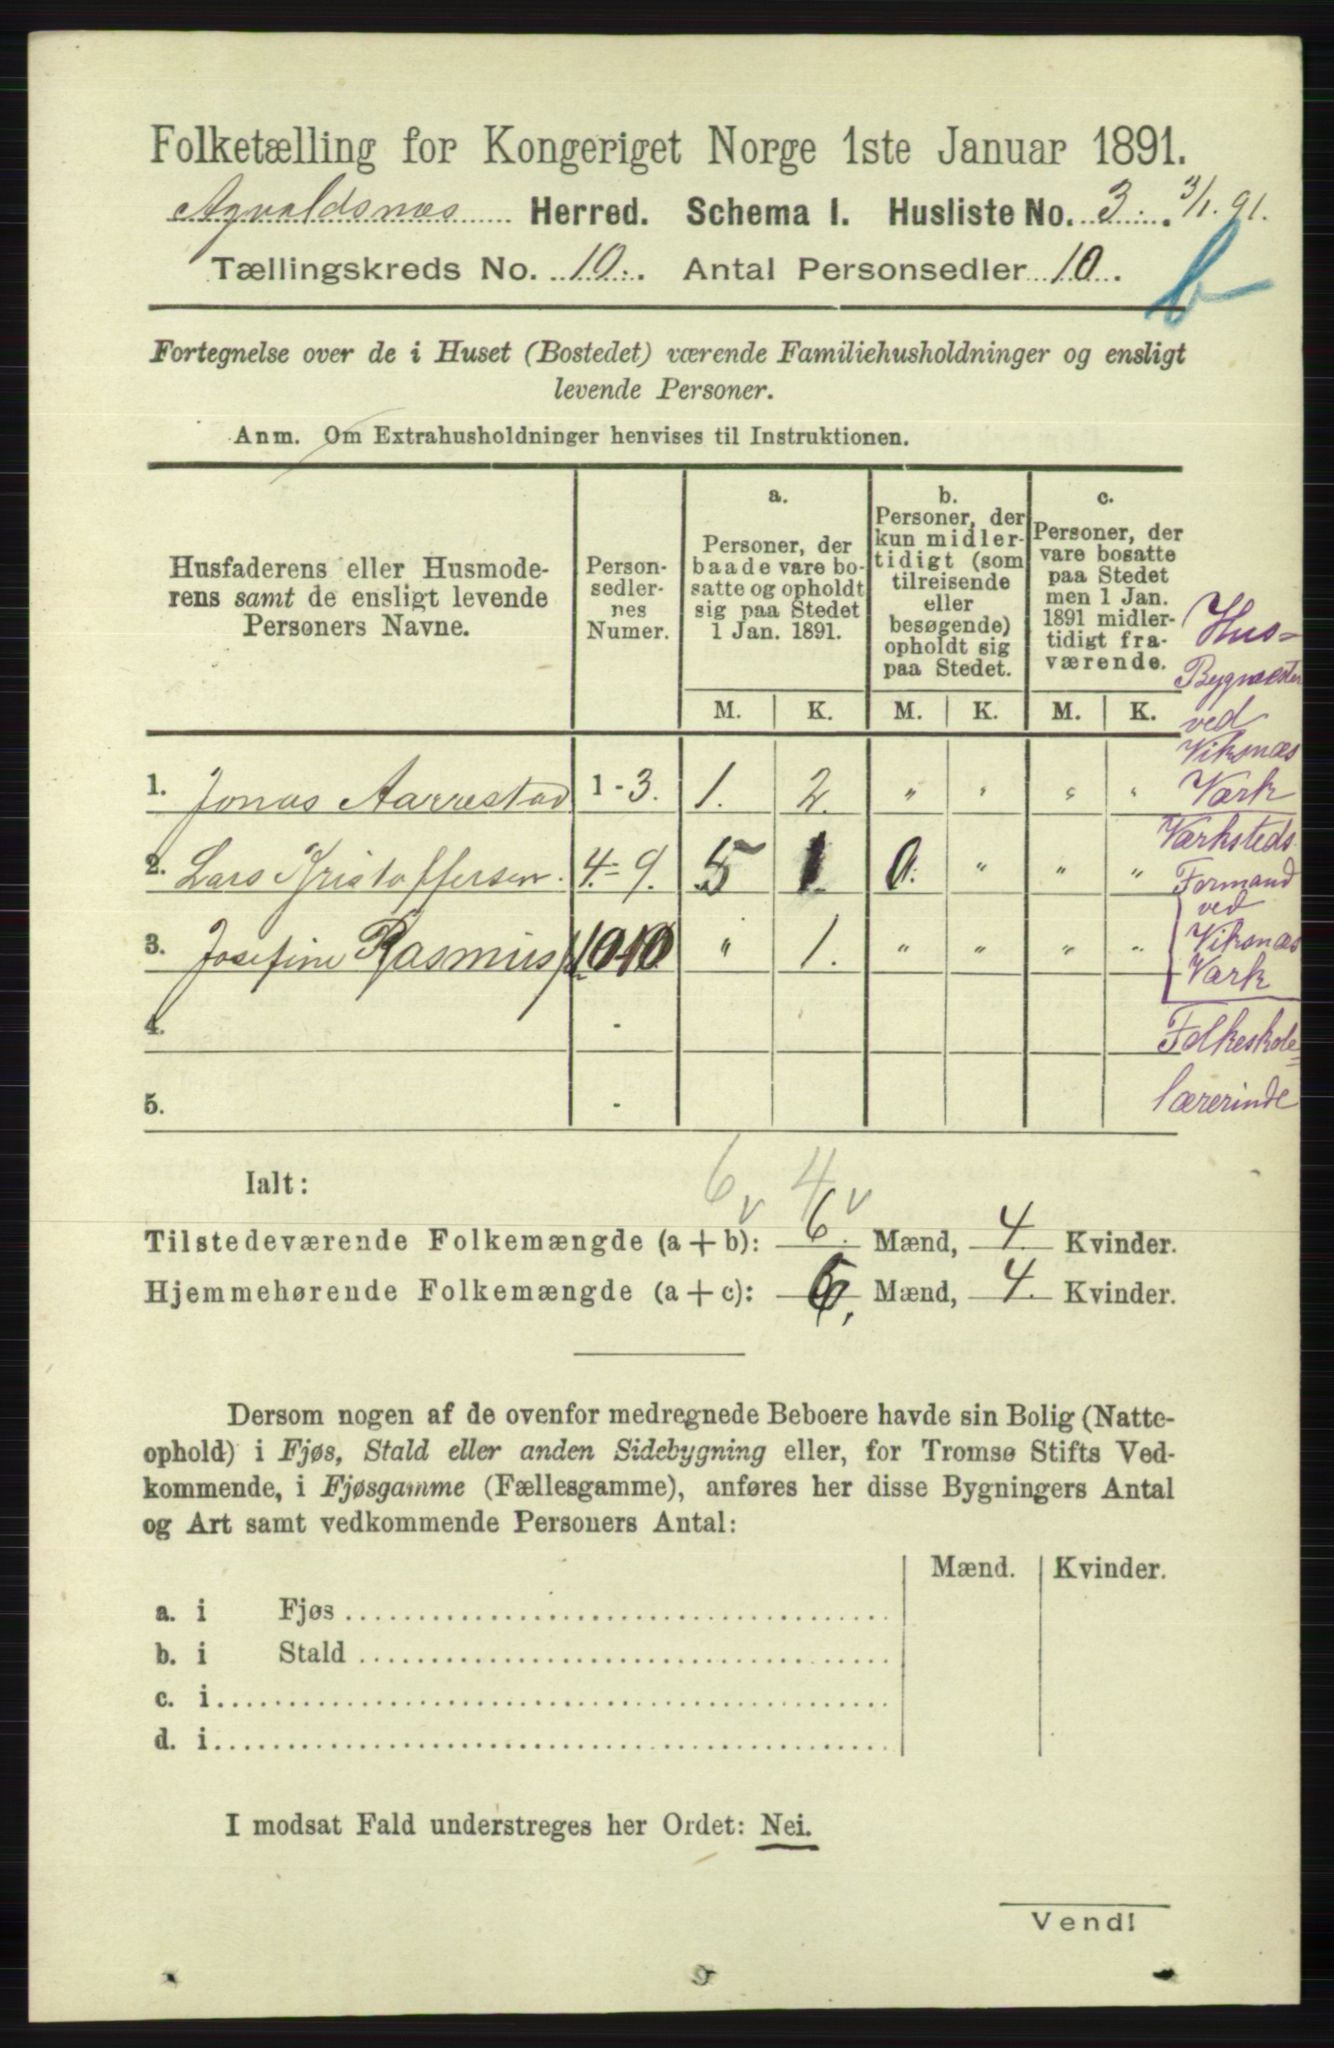 Folketælling for Kongeriget Norge 1ste Januar 1891.
Agvaldsnæs Herred. Schema I. Husliste No. 3. 3/1. 91.
Tællingskreds No. 10. Antal Personsedler 10.
b
Fortegnelse over de i Huset (Bostedet) værende Familiehusholdninger og ensligt
levende Personer.
Anm. Om Extrahusholdninger henvises til Instruktionen.
Husfaderens eller Husmode-
rens samt de ensligt levende
Personers Navne.
Person-
sedler-
nes
Numer.
a.
Personer, der
baade vare bo-
satte og opholdt
sig paa Stedet
1 Jan. 1891.
b.
Personer, der
kun midler-
tidigt (som
tilreisende
eller
besøgende)
opholdt sig
paa Stedet.
c.
Personer, der
vare bosatte
paa Stedet
men 1 Jan.
1891 midler-
tidigt fra-
værende.
M. K. M. K. M. K.
Hus-
Bygmester
ved
Viksnæs
Værk
1. Jonas Aarrestad 1-3. 1. 2. " " " "
Værksteds
Formand
ved
Viksnæs
Værk
2. Lars Kristoffersen. 4.-9. 5 1. 0. " " "
3. Josefine Rasmus 10 " 1. " " " "
Folkeskole=
lærerinde
4. -
5. -
Ialt:
6 4
Tilstedeværende Folkemængde (a+b): 6. Mænd, 4. Kvinder.
Hjemmehørende Folkemængde (a+c): 6. Mænd, 4. Kvinder.
Dersom nogen af de ovenfor medregnede Beboere havde sin Bolig (Natte-
ophold) i Fjøs, Stald eller anden Sidebygning eller, for Tromsø Stifts Ved-
kommende, i Fjøsgamme (Fællesgamme), anføres her disse Bygningers Antal
og Art samt vedkommende Personers Antal:
Mænd. Kvinder.
a. i Fjøs
b. i Stald
c. i
d. i
I modsat Fald understreges her Ordet: Nei.
Vend!